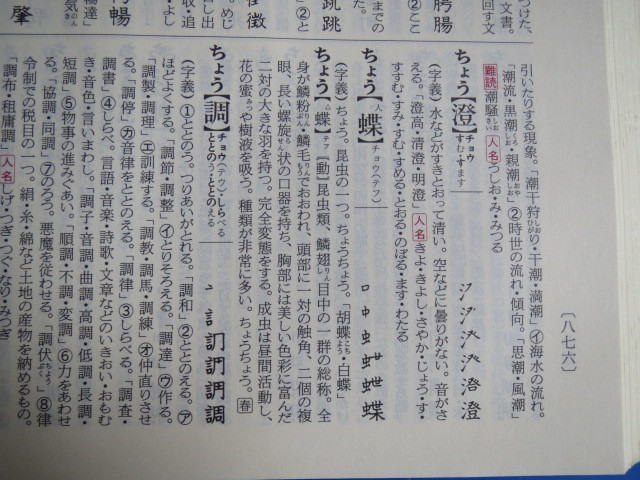 つけた、
文書。
回す文
引いたりする現象。「潮干狩ひがり・干潮・満潮」㋑海水の流れ。
「潮流・黒潮・親潮おやしお」②時世の流れ・傾向。「思潮・風潮」
難読潮騒しおさい 人名うしお・み・みつる
ちょう【澄】チョウ すむ・すます
(字義)水などがすきとおって清い。空などに曇りがない。音がさ
える。「澄高・清澄・明澄」人名きよ・きよし・さやか・じょう・す・
すすむ・すみ・すむ・すめる・とおる・のぼる・ます・わたる
ちょう【蝶】人 チョウ(テフ)
(字義)ちょう。昆虫の一つ。ちょうちょう。「胡蝶こちょう・白蝶」
ちょう【蝶】テフ〔動〕昆虫類、鱗翅りんし目中の一群の総称。全
身が鱗粉りんぷん・鱗毛りんもうでおおわれ、頭部に一対の触角、二個の複
眼、長い螺旋らせん状の口器を持ち、胸部には美しい色彩に富んだ
二対の大きな羽を持つ。完全変態をする。成虫は昼間活動し、
花の蜜みつや樹液を吸う。種類が非常に多い。ちょうちょう。春
ちょう【調】チョウ(テウ)・しらべる ととのう・ととのえる
(字義)①ととのう。つりあいがとれる。「調和」②ととのえる。㋐
ほどよくする。「調節・調整」㋑とりそろえる。「調達」㋒作る。
「調製・調理」㋓訓練する。「調教・調馬・調練」㋔仲直りさせ
る。「調停」㋕音律をととのえる。「調律」③しらべる。「調査・
調書」④しらべ。言語・音楽・詩歌・文章などのいきおい・おもむ
き・音色・言いまわし。「調子・音調・曲調・高調・低調・長調・
短調」⑤物事の進みぐあい。「順調・不調・変調」⑥力をあわせ
る。「協調・同調」⑦のろう。悪魔を従わせる。「調伏ちょうぶく」⑧律
令制での税目の一つ。絹・糸・綿など土地の産物を納めるもの。
「調布・租庸調」人名しげ・つぎ・つぐ・なり・みつぎ
〔八七六〕